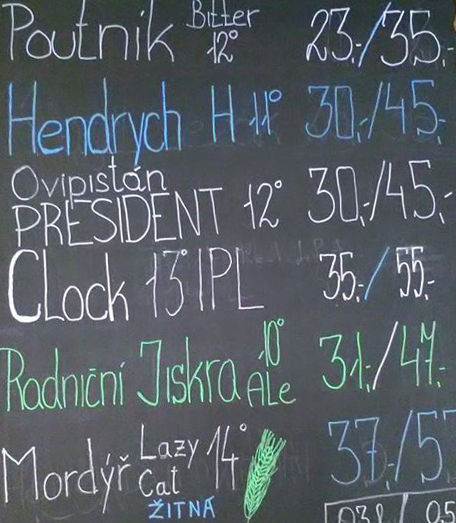 Poutník Bitter 12° 23,-/35,-
Hendrych H 11° 30,-/45,-
Ovipistán
PRESIDENT 12° 30,-/45,-
CLock 13° IPL 35,-/55,-
Radniční Jiskra 10° ALe 31,-/47,-
Mordýř Lazy Cat 14° 37,-/57
ŽITNÁ
0,3l / 0,5